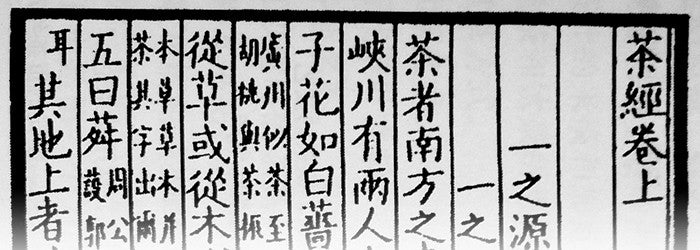 茶經卷上
一之源
一之
茶者南方之
峽川有兩人
子花如白薔
廣州似茶至
胡桃與茶根
從草或從木
本草草木并
茶其字出爾
五曰荈周公
護郭
耳其地上者